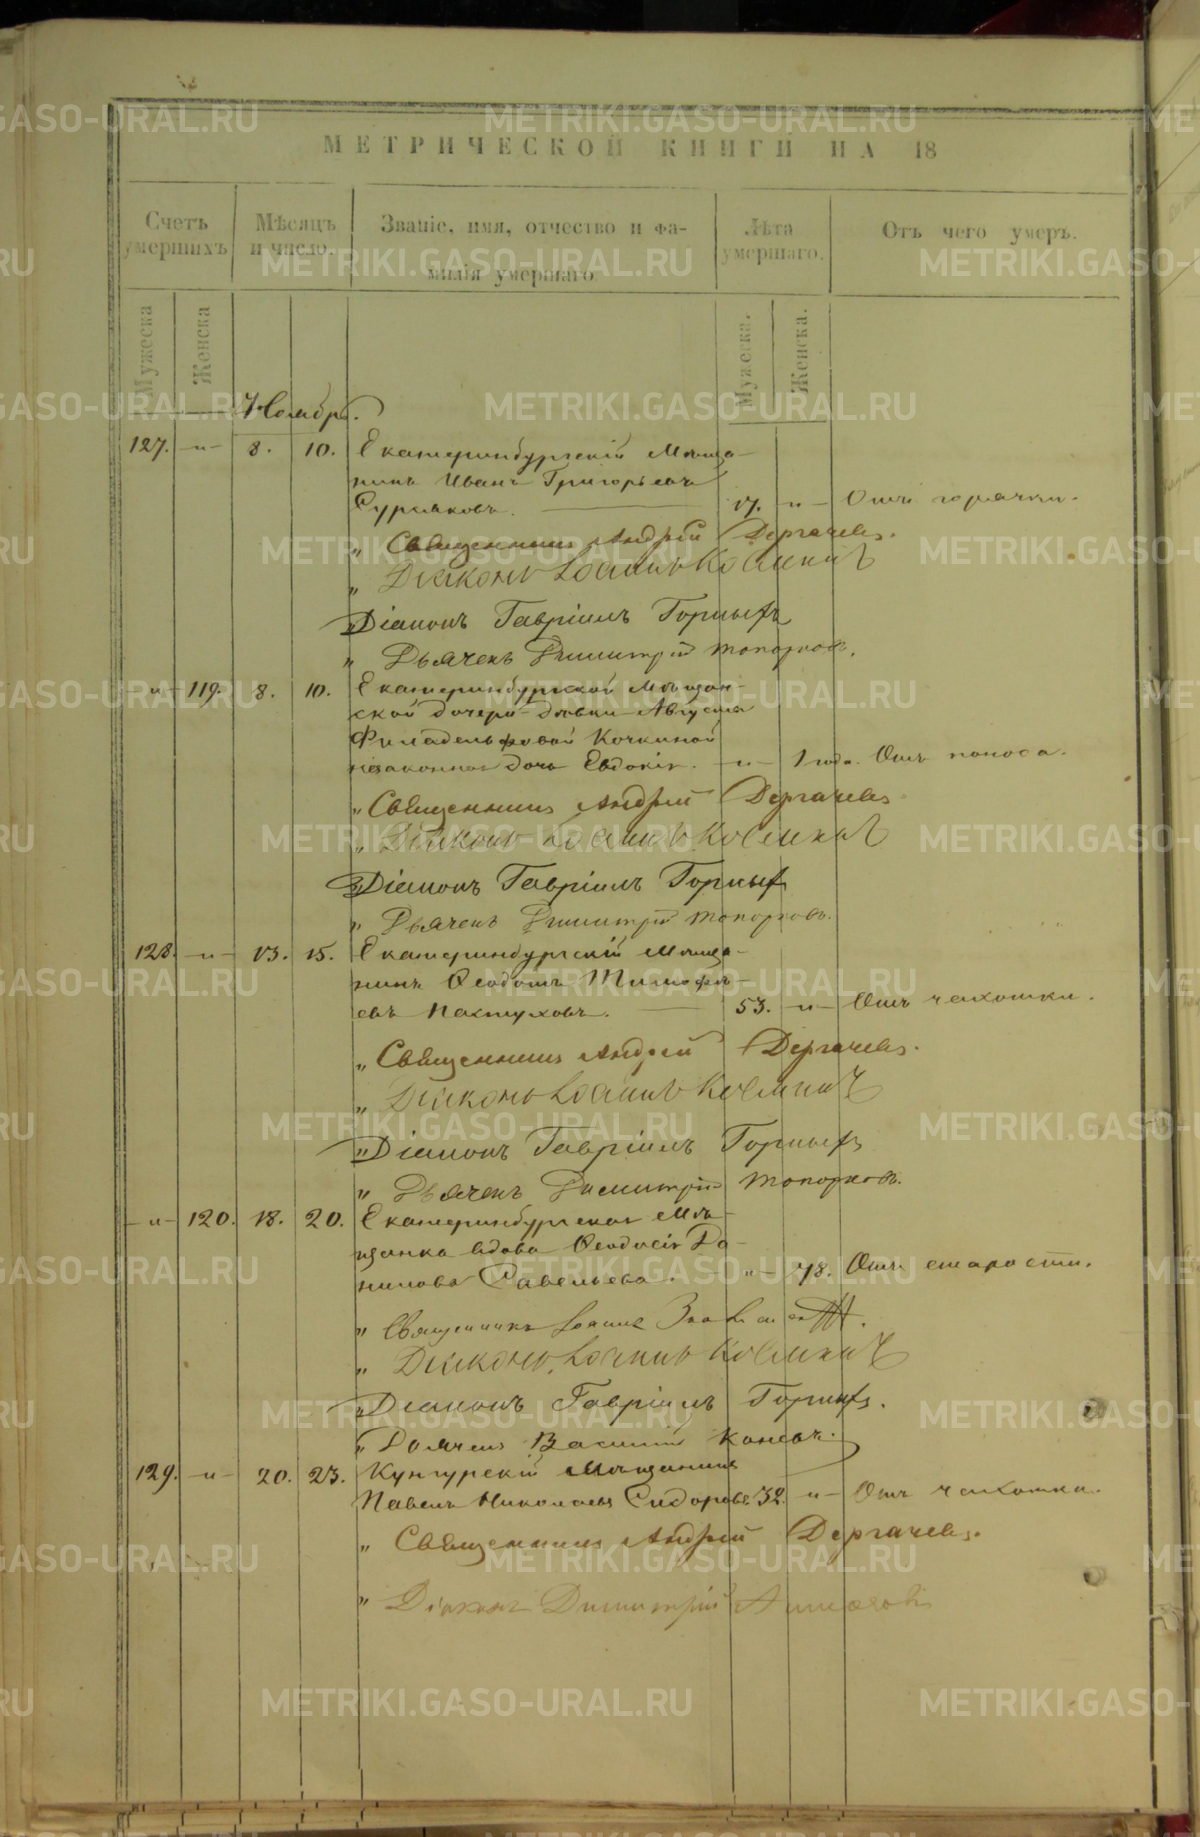 МЕТРИЧЕСКОЙ КНИГИ НА 18
Счетъ умершихъ
Мѣсяцъ и число.
Званіе, имя, отчество и фамилія умершаго.
Лѣта умершаго.
Отъ чего умеръ.
Мужеска
Женска
Мужеска.
Женска.
Ноябрь.
127. -"- 8. 10. Екатеринбургскій Мѣща-
нинъ Иванъ Григорьевъ
17. -"- Отъ горячки.
" Священникъ Андрей Дергачевъ.
" Діаконъ Іоаннъ
Діаконъ Гавріилъ Горныхъ
" Дьячекъ Димитрій Топорковъ.
-"- 119. 8. 10. Екатеринбургской Мѣщан-
ской дочери-дѣвки Августы
Филадельфовой Кочкиной
незаконная дочь Евдокія. -"- 1 года. Отъ поноса.
" Священникъ Андрей Дергачевъ
" Діаконъ Іоаннъ
Діаконъ Гавріилъ Горныхъ
" Дьячекъ Димитрій Топорковъ.
128. -"- 13. 15. Екатеринбургскій Мѣща-
нинъ Ѳеодотъ Тимофѣ-
евъ Пастуховъ. 53. -"- Отъ чахотки.
" Священникъ Андрей Дергачевъ.
" Діаконъ Іоаннъ
" Діаконъ Гавріилъ Горныхъ
" Дьячекъ Димитрій Топорковъ.
-"- 120. 18. 20. Екатеринбургская Мѣ-
щанка вдова Ѳеодосія Да-
нилова Савельева. "- 78. Отъ старости.
" Священникъ Іоаннъ
" Діаконъ Іоаннъ
" Діаконъ Гавріилъ Горныхъ.
" Дьячекъ Василій Коневъ.
129. -"- 20. 23. Кунгурскій Мѣщанинъ
Павелъ Николаевъ Сидоровъ. 32. -"- Отъ чахотки.
" Священникъ Андрей Дергачевъ.
" Діаконъ Димитрій
METRIKI.GASO-URAL.RU